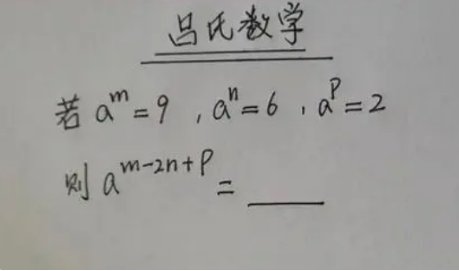 吕氏数学
若 a^m = 9 , a^n = 6 , a^p = 2
则 a^{m-2n+p} = ____